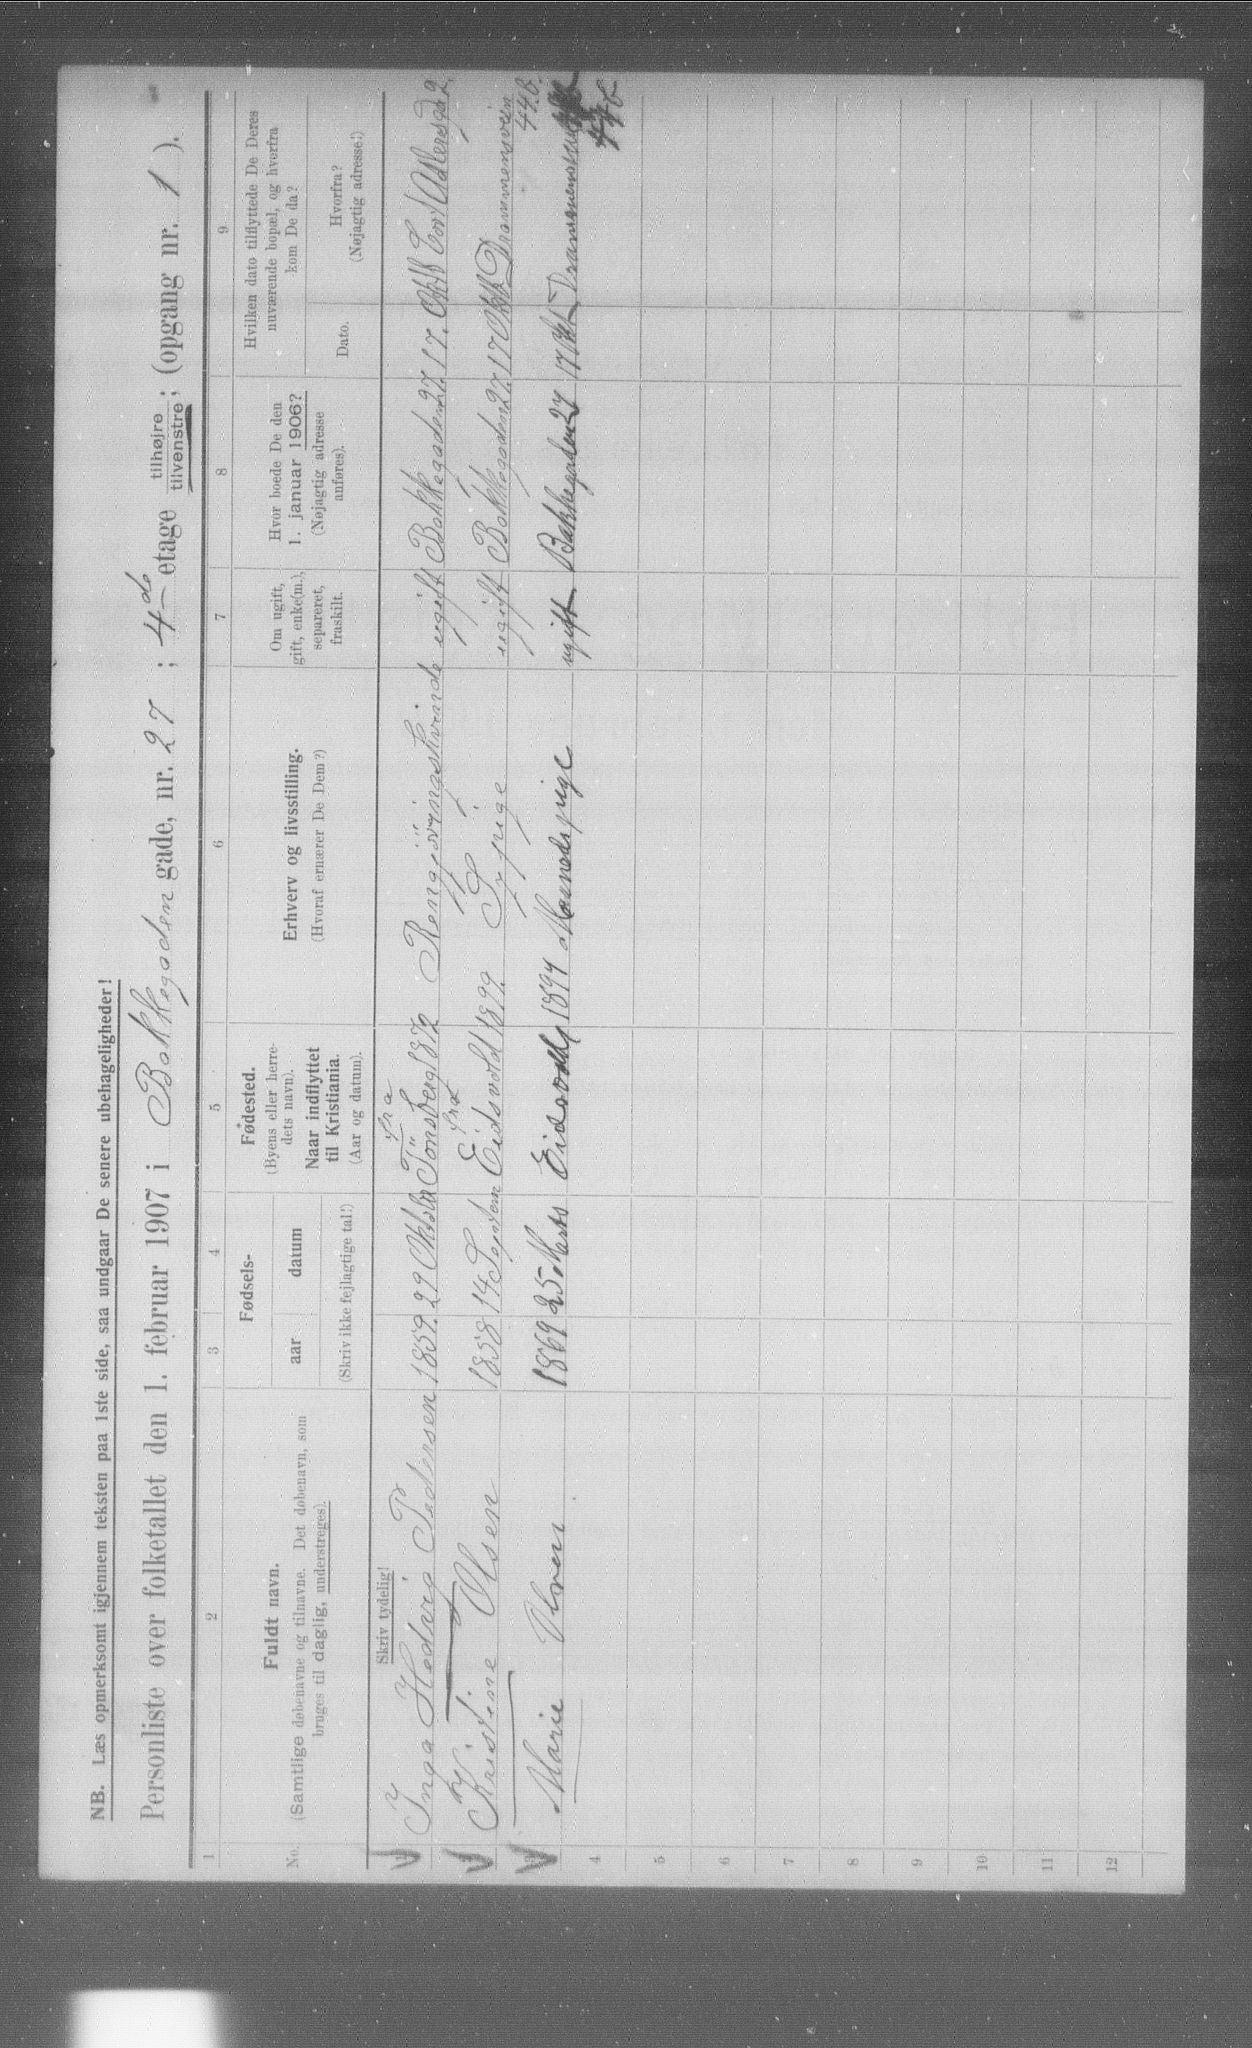 NB. Læs opmerksomt igjennem teksten paa 1ste side, saa undgaar De senere ubehageligheder!
Personliste over folketallet den 1. februar 1907 i Bakkegaden gade, nr. 27 ; 4de etage tilhøjre tilvenstre ; (opgang nr. 1 ).
1 2 3 4 5 6 7 8 9
No.
Fuldt navn.
(Samtlige døbenavne og tilnavne. Det døbenavn, som
bruges til daglig, understreges).
Fødsels-
aar datum
(Skriv ikke fejlagtige tal!)
Fødested.
(Byens eller herre-
dets navn).
Naar indflyttet
til Kristiania.
(Aar og datum).
Erhverv og livsstilling.
(Hvoraf ernærer De Dem?)
Om ugift,
gift, enke(m.),
separeret,
fraskilt.
Hvor boede De den
1. januar 1906?
(Nøjagtig adresse
anføres).
Hvilken dato tilflyttede De Deres
nuværende bopæl, og hvorfra
kom De da?
Dato.
Hvorfra?
(Nøjagtig adresse!)
Skriv tydelig!
fra
1 Inga Hedevig Pedersen 1859 29 Oktober Tönsberg 1872 Rengjöringskvinde ugift Bakkegaden 27. 17. Oktb Cort Adlersgd 2
fra
2 Kristine Olsen 1858 14 Septem Eidsvold 1899 Sypige ugift Bakkegaden 27. 17 Oktb Drammensvein
44.b.
3 Marie Olsen 1869 25 Marts Eidsvold 1894 Maanedspige ugift Bakkegaden 27 17 Okt Drammensvei
44 b
4
5
6
7
8
9
10
11
12